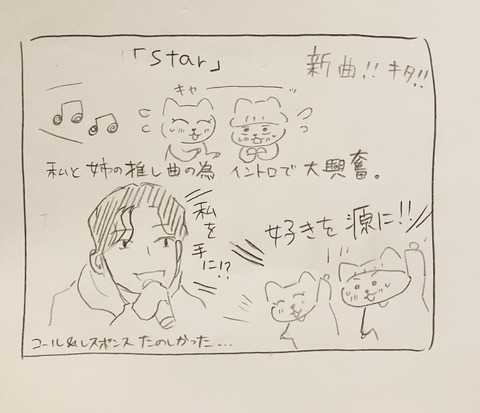 「Star」
新曲!! キタ!!
キャーーーッ
私と姉の推し曲の為 イントロで 大興奮。
私を
手に!?
好きを源に!!
コール&レスポンスたのしかった…